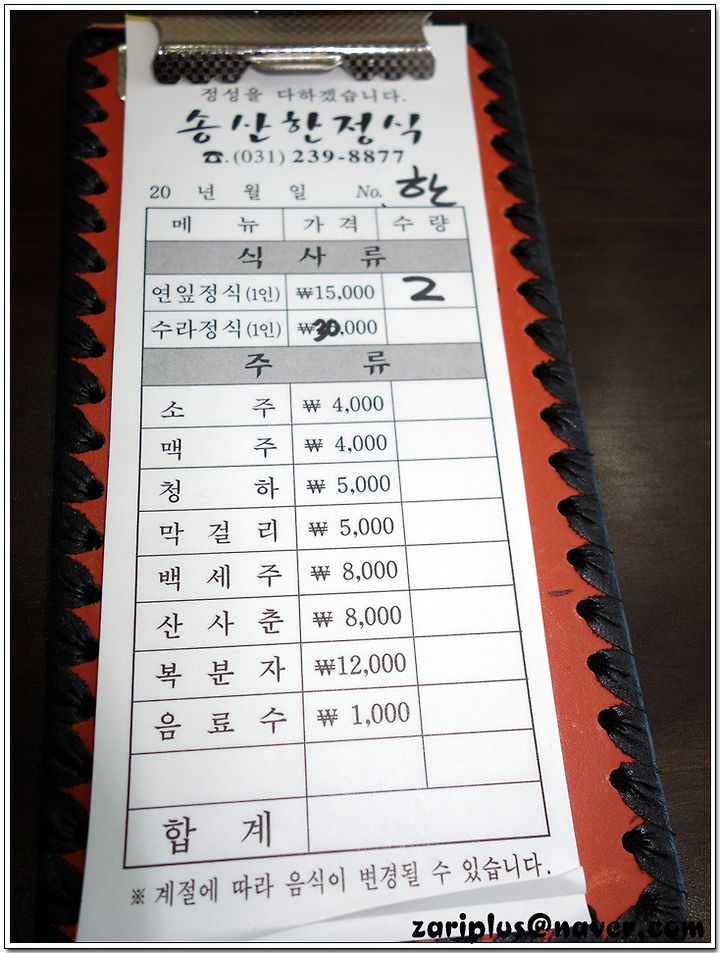 정성을 다하겠습니다.
송산한정식
☎.(031) 239-8877
20 년 월 일 No. 한
메 뉴 가 격 수 량
식 사 류
연잎정식(1인) ₩15,000 2
수라정식(1인) ₩30,000
주 류
소 주 ₩ 4,000
맥 주 ₩ 4,000
청 하 ₩ 5,000
막 걸 리 ₩ 5,000
백 세 주 ₩ 8,000
산 사 춘 ₩ 8,000
복 분 자 ₩12,000
음 료 수 ₩ 1,000
합 계
※ 계절에 따라 음식이 변경될 수 있습니다.
zariplus@naver.com